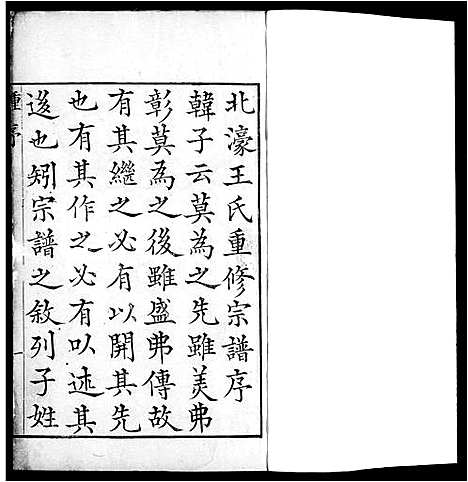 北濠王氏重修宗譜序
韓子云莫為之先雖美弗
彰莫為之後雖盛弗傳故
有其繼之必有以開其先
也有其作之必有以述其
後也矧宗譜之敘列子姓
重序
一